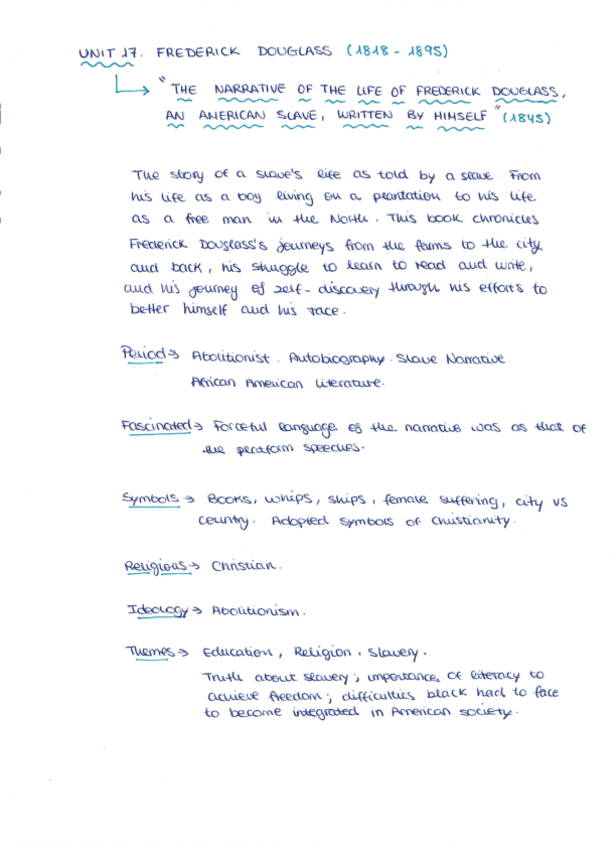 UNIT 17. FREDERICK DOUGLASS (1818 - 1895)
"THE NARRATIVE OF THE LIFE OF FREDERICK DOUGLASS,
AN AMERICAN SLAVE, WRITTEN BY HIMSELF" (1845)
The story of a slave's life as told by a slave. From
his life as a boy living on a plantation to his life
as a free man in the North. This book chronicles
Frederick Douglass's journeys from the farms to the city
and back, his struggle to learn to read and write,
and his journey of self-discovery through his efforts to
better himself and his race.
Period → Abolitionist. Autobiography. Slave Narrative.
African American Literature.
Fascinated → Forceful language of the narrative was as that of
the platform speeches.
Symbols → Books, whips, ships, female suffering, city vs
country. Adopted symbols of Christianity.
Religious → Christian.
Ideology → Abolitionism.
Themes → Education, Religion, Slavery.
Truth about slavery; importance of literacy to
achieve freedom; difficulties black had to face
to become integrated in American society.